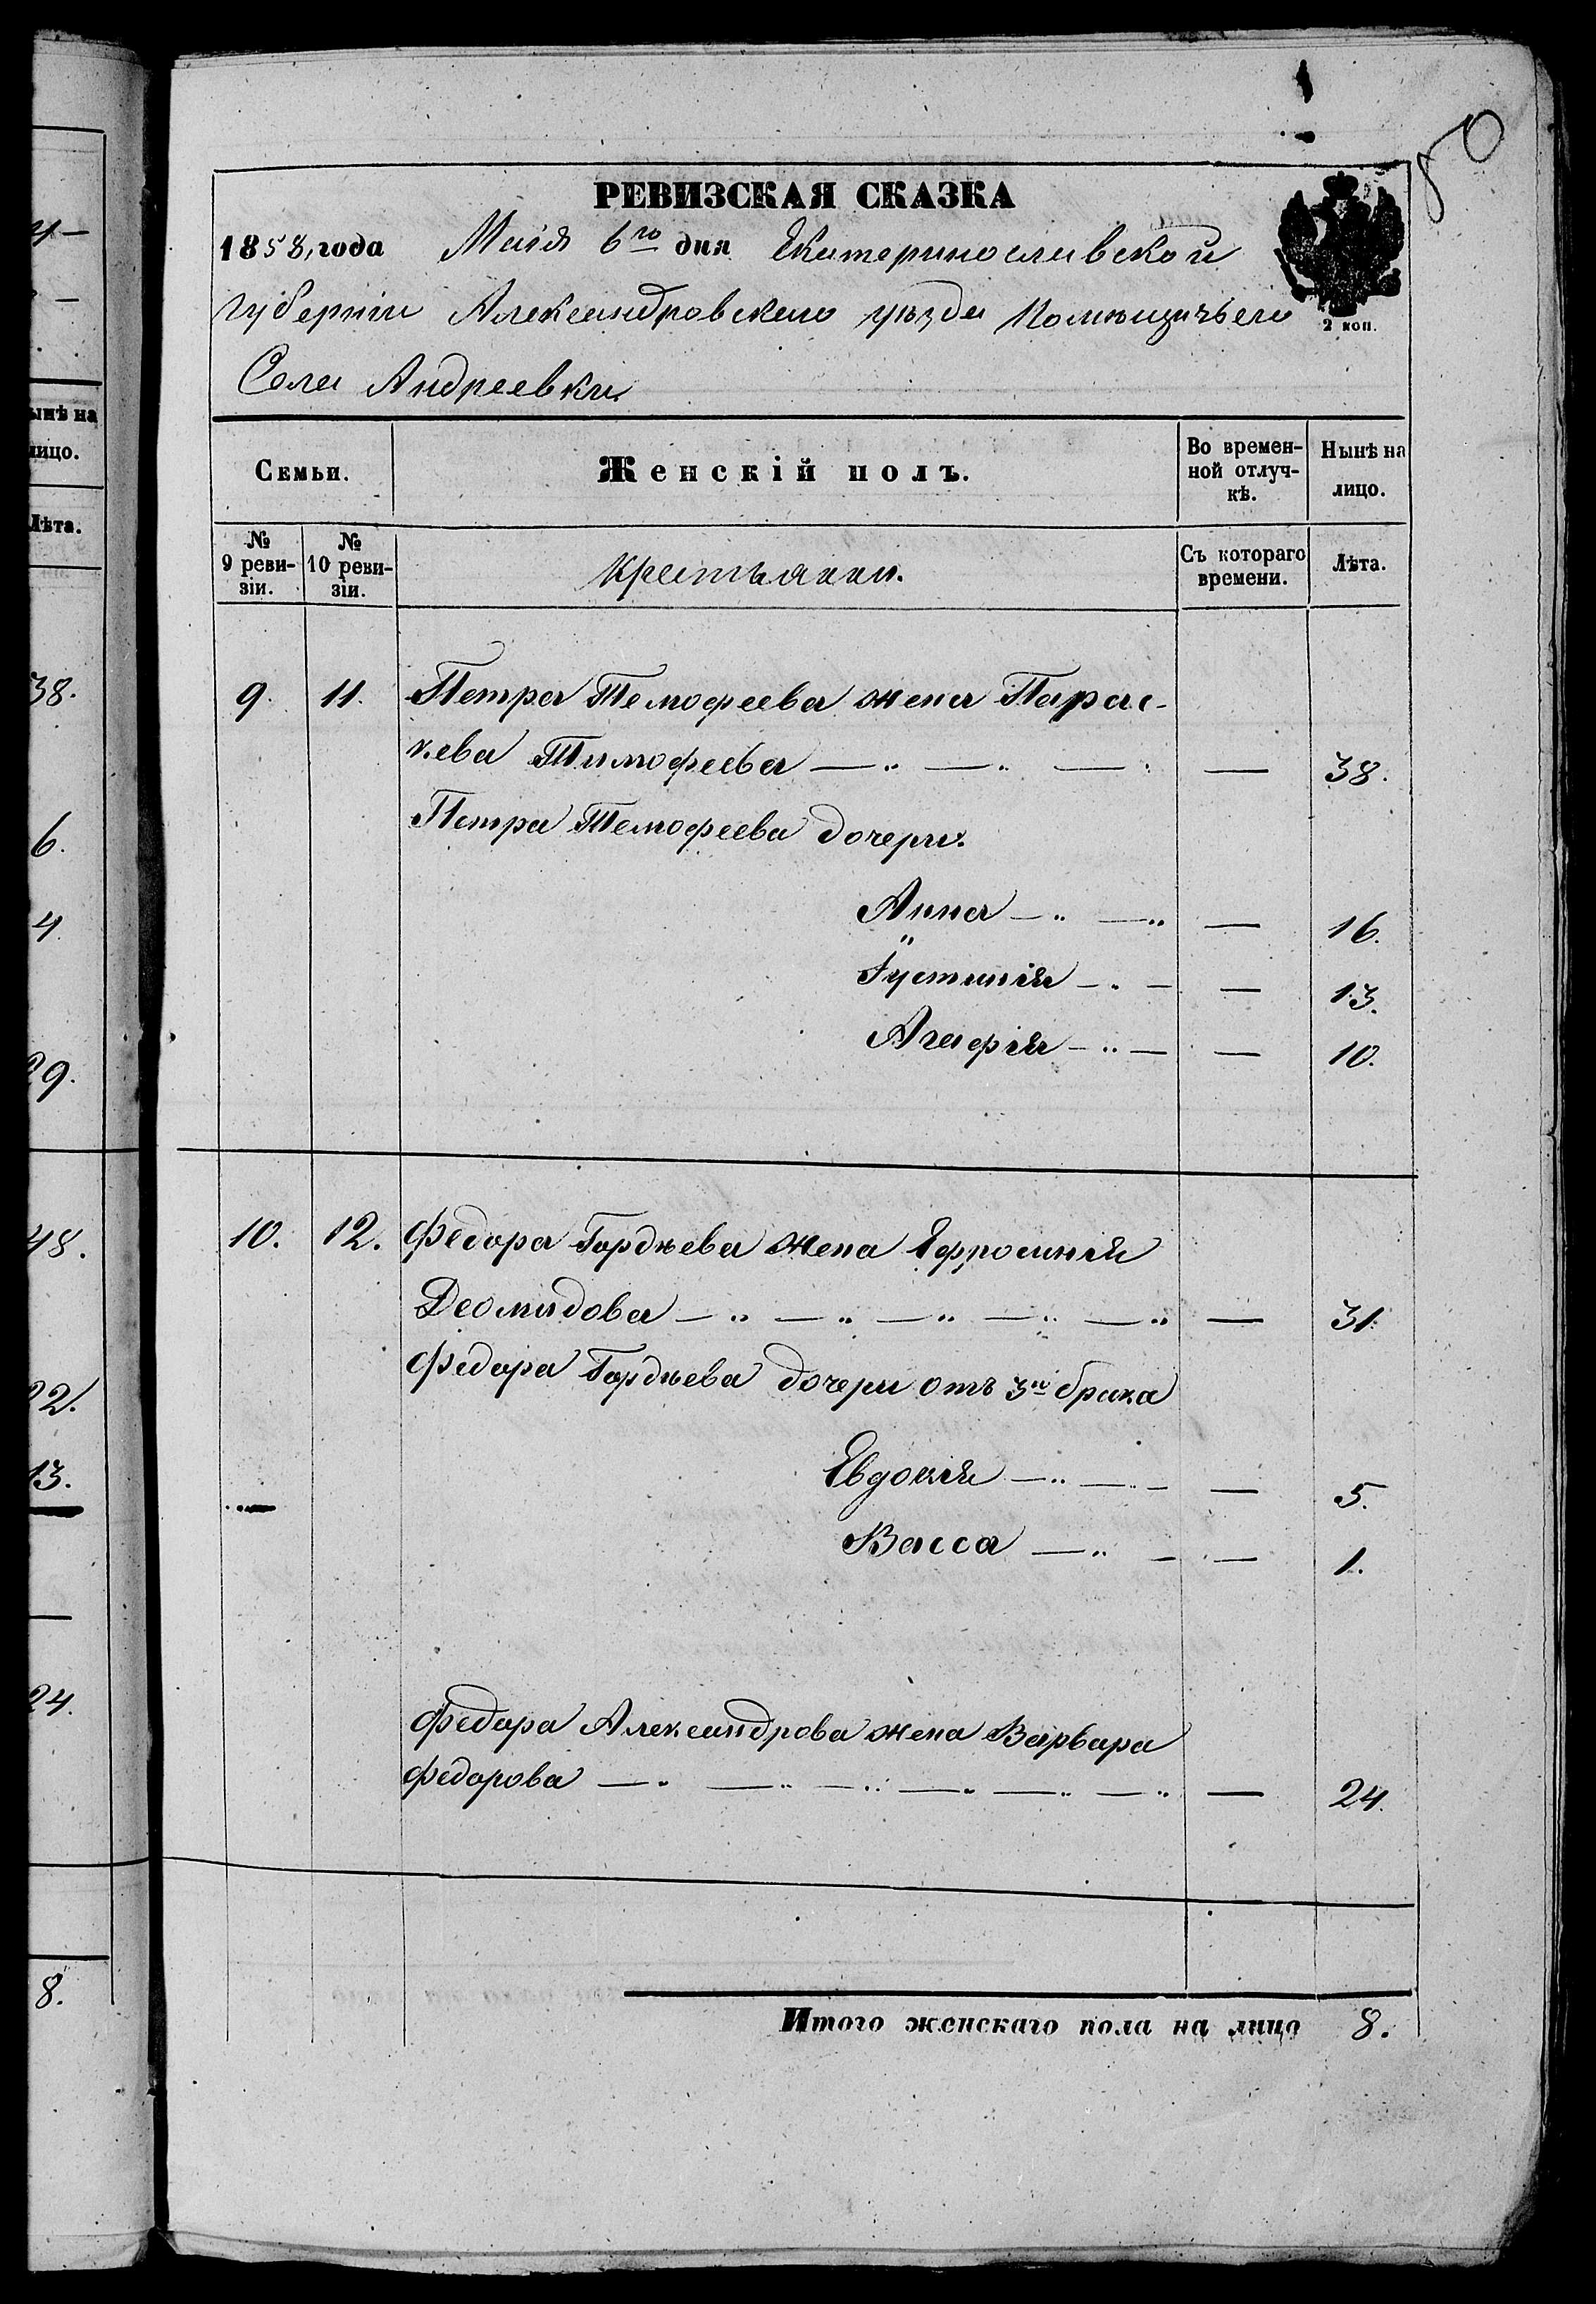 50
РЕВИЗСКАЯ СКАЗКА
1858, года Маія 6го дня Екатеринославской
2 коп.
губерніи Александровскаго уѣзда Помѣщичьяго
Села Андреевки
Семьи. Женскій полъ. Во времен-ной отлуч-кѣ. Нынѣ на лицо.
№ 9 реви-зіи. № 10 реви-зіи. Крестьянки. Съ котораго времени. Лѣта.
9. 11. Петра Темофеева жена Парас-
кева Тимофеева — — — — 38.
Петра Темофеева дочери.
Анна — — — 16.
Іустинія — — — 13.
Агафія — — — 10.
10. 12. Федора Гордѣева жена Ефросинія
Деомидова — — — — — — 31.
Федора Гордѣева дочери отъ 3го брака
Евдокія — — — — 5.
Васса — — — 1.
Федора Александрова жена Варвара
Федорова — — — — — — — 24.
Итого женскаго пола на лицо 8.
ынѣ на
лицо.
Лѣта.
38.
6.
4.
29.
48.
22.
13.
24.
8.